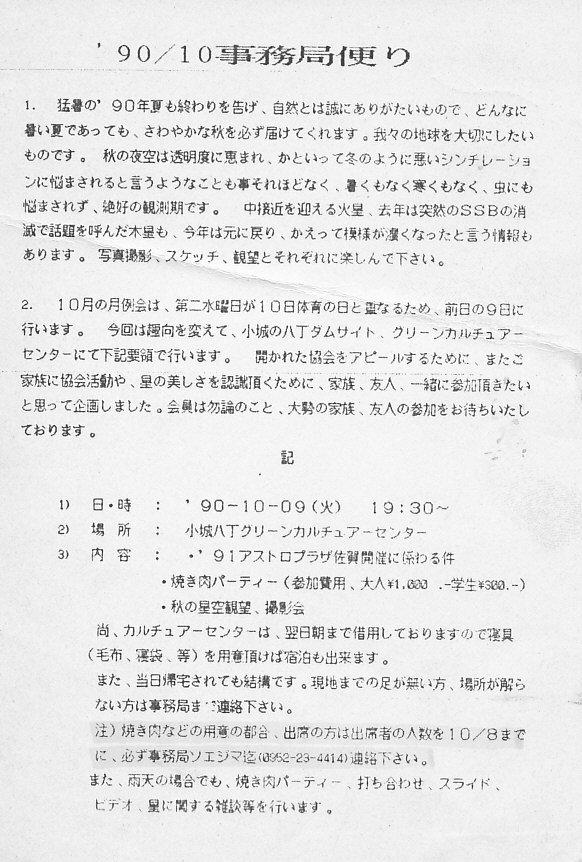 ’９０／１０事務局便り
１．　猛暑の’９０年夏も終わりを告げ、自然とは誠にありがたいもので、どんなに
暑い夏であっても、さわやかな秋を必ず届けてくれます。我々の地球を大切にしたい
ものです。　秋の夜空は透明度に恵まれ、かといって冬のように悪いシンチレーショ
ンに悩まされると言うようなことも事それほどなく、暑くもなく寒くもなく、虫にも
悩まされず、絶好の観測期です。　中接近を迎える火星、去年は突然のＳＳＢの消
滅で話題を呼んだ木星も、今年は元に戻り、かえって模様が濃くなったと言う情報も
あります。　写真撮影、スケッチ、観望とそれぞれに楽しんで下さい。
２．　１０月の月例会は、第二水曜日が１０日体育の日と重なるため、前日の９日に
行います。　今回は趣向を変えて、小城の八丁ダムサイト、グリーンカルチュアー
センターにて下記要領で行います。　開かれた協会をアピールするために、またご
家族に協会活動や、星の美しさを認識頂くために、家族、友人、一緒に参加頂きたい
と思って企画しました。会員は勿論のこと、大勢の家族、友人の参加をお待ちいたし
ております。
記
1)　日・時　：　’９０−１０−０９（火）　１９：３０〜
2)　場　所　：　小城八丁グリーンカルチュアーセンター
3)　内　容　：　・’９１アストロプラザ佐賀開催に係わる件
・焼き肉パーティー（参加費用、大人¥1,000 .-学生¥800.-）
・秋の星空観望、撮影会
尚、カルチュアーセンターは、翌日朝まで借用しておりますので寝具
（毛布、寝袋、等）を用意頂けば宿泊も出来ます。
また、当日帰宅されても結構です。現地までの足が無い方、場所が解ら
ない方は事務局まで連絡下さい。
注）焼き肉などの用意の都合、出席の方は出席者の人数を１０／８まで
に、必ず事務局ソエジマ迄(0952-23-4414)連絡下さい。
また、雨天の場合でも、焼き肉パーティー、打ち合わせ、スライド、
ビデオ、星に関する雑談等を行います。